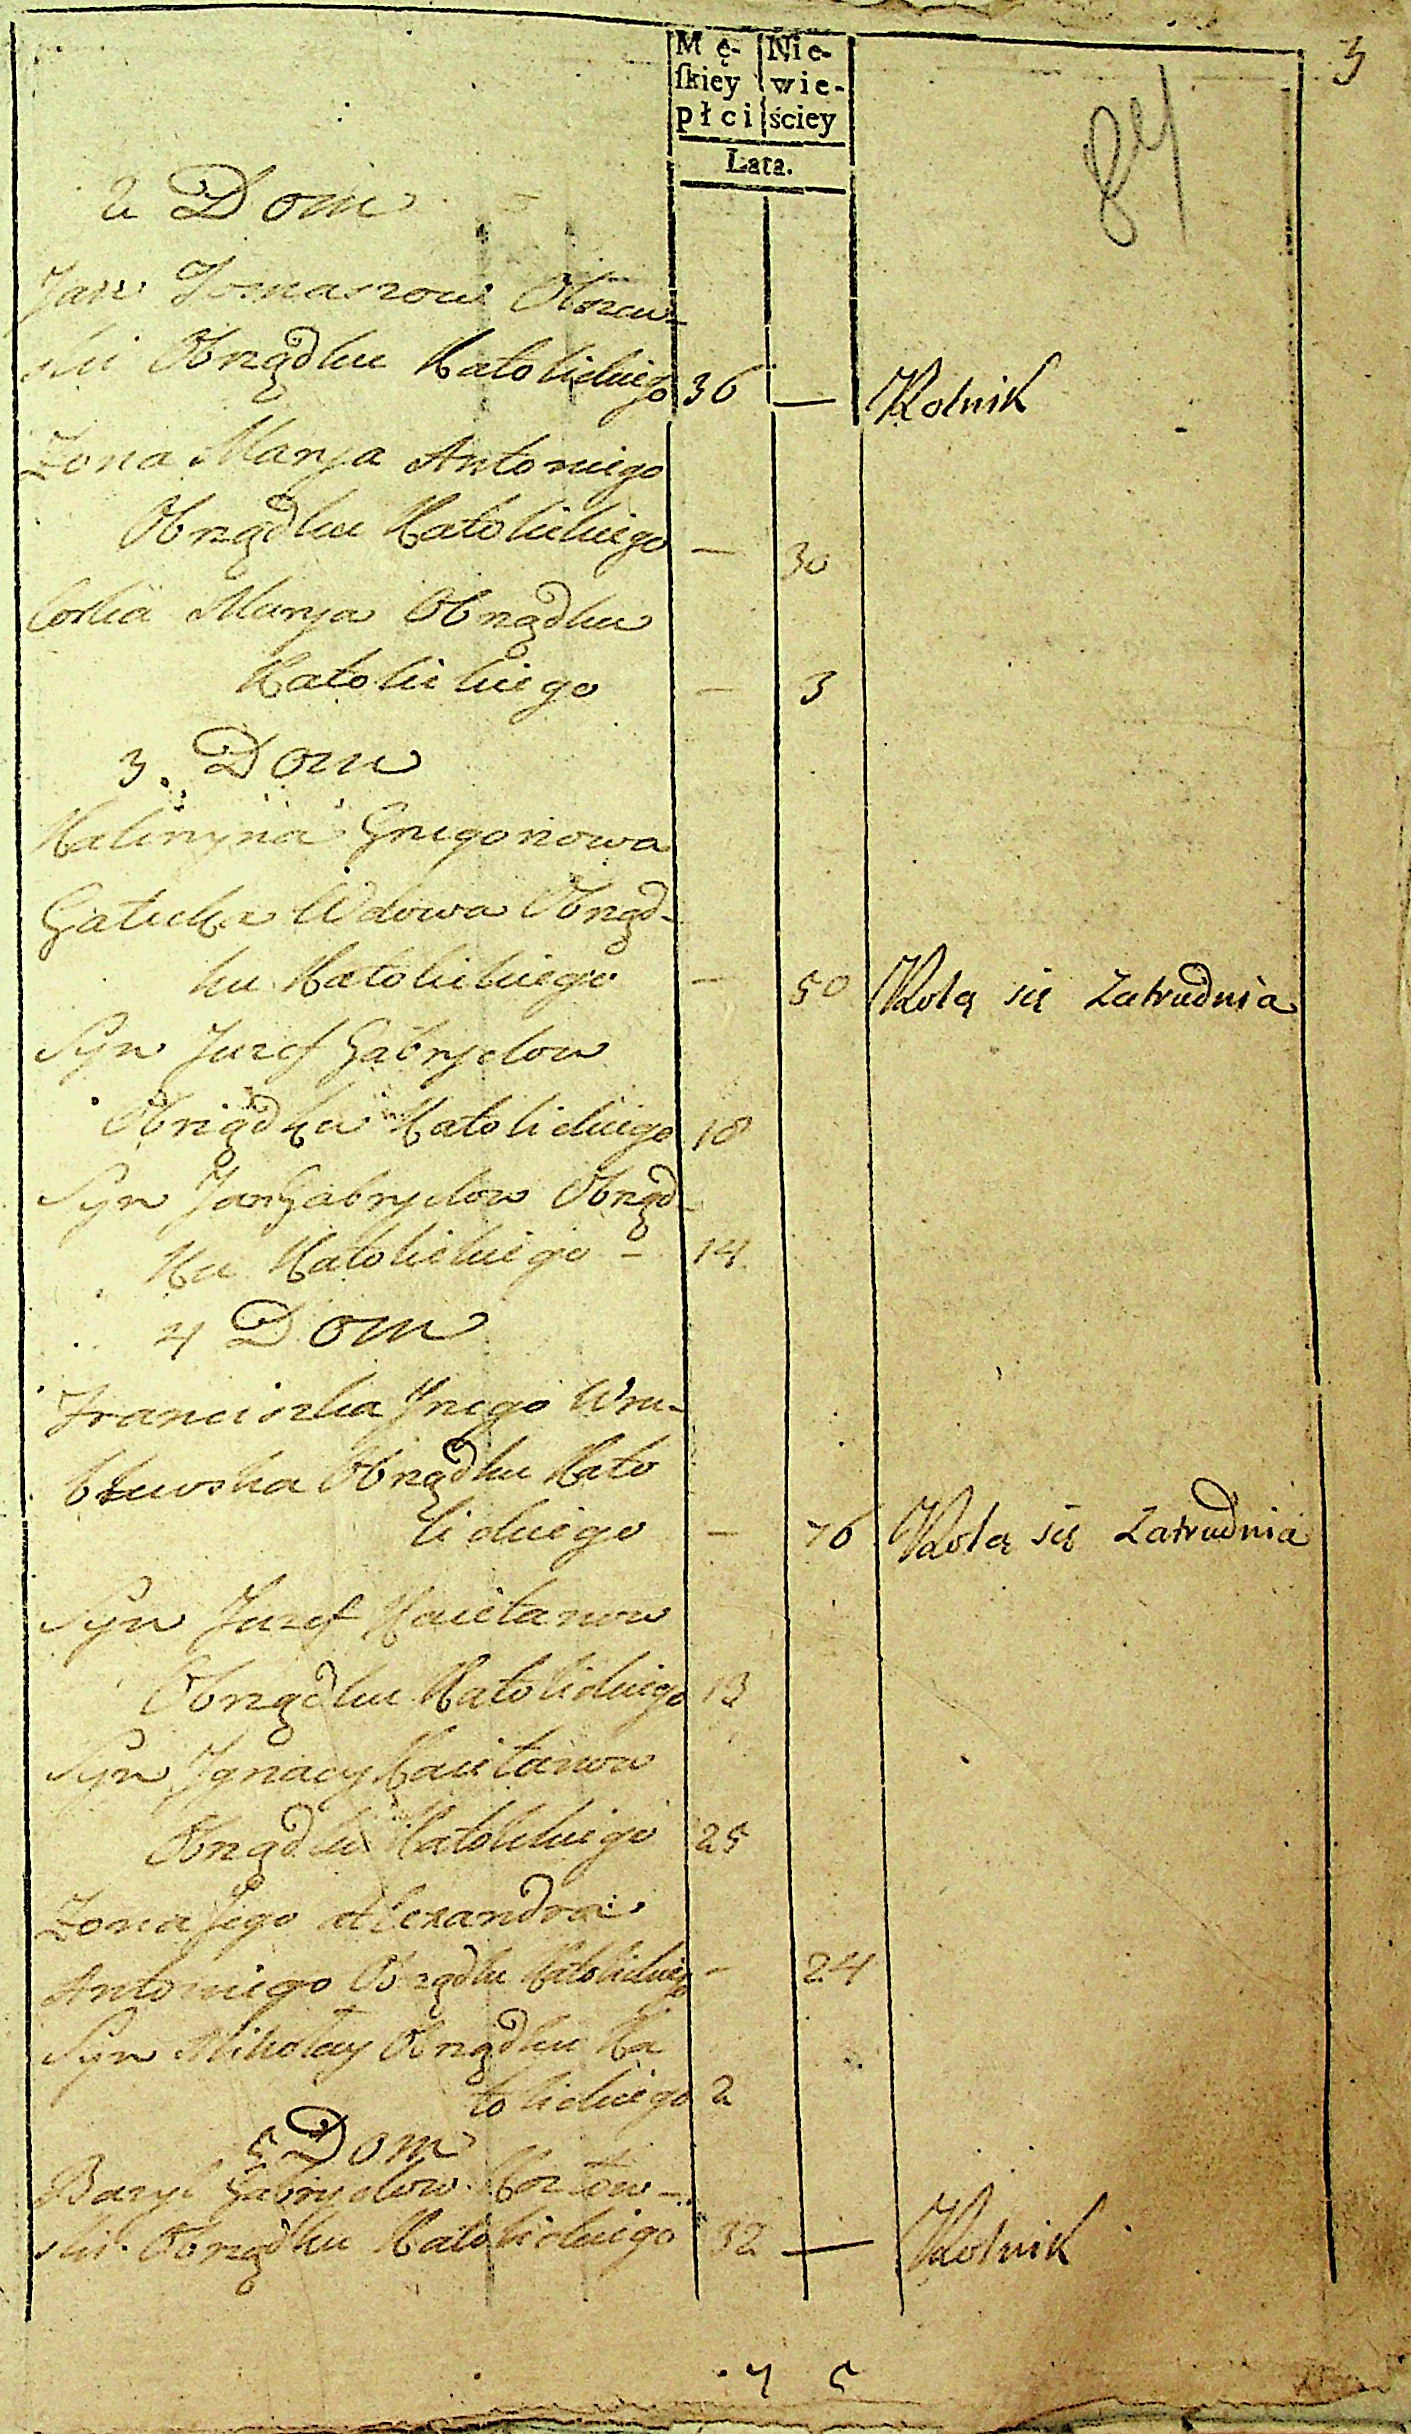 3
84
Mę- Nie-
ſkiey wie-
płci ściey
Lata.
2 Dom
Jan Tomaszow Olszew-
ski Obrządku Katolickiego 36 — Rolnik
Zona Marya Antoniego
Obrządku Katolickiego — 30
Corka Marya Obrządku
Katolickiego — 3
3. Dom
Katiryna Grzegorzowa
Wdowa Obrząd-
ku Katolickiego — 50 Rolą się Zatrudnia
Syn Juzef Gabryelow
Obrządku Katolickiego 18
Syn Jan Gabryelow Obrząd-
Ku Katolickiego — 14
4 Dom
Franciszka Wru-
blewska Obrządku Kato
lickiego — 76 Rolą się Zatrudnia
Syn Juzef Kaietanow
Obrządku Katolickiego 13
Syn Ignacy Kaietanow
Obrządku Katolickiego 25
Zona Jego Alexandra
Antoniego Obrządku Katolickiego — 24
Syn Mikołay Obrządku Ka
tolickiego 2
5 Dom
Bazyl Gabryelow Kozłow-
ski Obrządku Katolickiego 32 — Rolnik
7 5